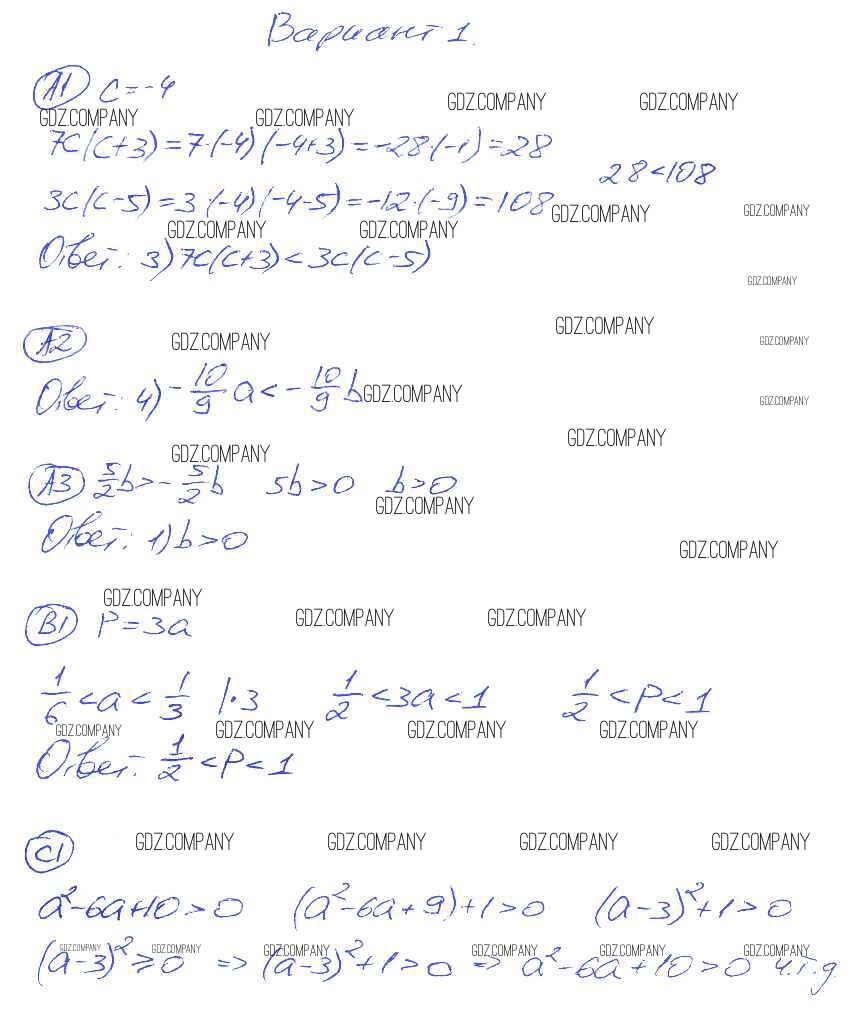 Вариант 1.
А1 c = -4
GDZ.COMPANY GDZ.COMPANY GDZ.COMPANY GDZ.COMPANY
7c(c+3) = 7·(-4)(-4+3) = -28·(-1) = 28
28 < 108
3c(c-5) = 3·(-4)(-4-5) = -12·(-9) = 108
GDZ.COMPANY GDZ.COMPANY GDZ.COMPANY GDZ.COMPANY
Ответ: 3) 7c(c+3) < 3c(c-5)
GDZ.COMPANY
А2 GDZ.COMPANY GDZ.COMPANY GDZ.COMPANY
Ответ: 4) -10/9 a < -10/9 b GDZ.COMPANY GDZ.COMPANY
GDZ.COMPANY GDZ.COMPANY
А3 5/2 b > -5/2 b 5b > 0 b > 0
GDZ.COMPANY
Ответ: 1) b > 0
GDZ.COMPANY
GDZ.COMPANY GDZ.COMPANY GDZ.COMPANY
В1 P = 3a
1/6 < a < 1/3 |·3 1/2 < 3a < 1 1/2 < P < 1
GDZ.COMPANY GDZ.COMPANY GDZ.COMPANY GDZ.COMPANY
Ответ: 1/2 < P < 1
С1 GDZ.COMPANY GDZ.COMPANY GDZ.COMPANY GDZ.COMPANY
a²-6a+10 > 0 (a²-6a+9)+1 > 0 (a-3)²+1 > 0
GDZ.COMPANY GDZ.COMPANY GDZ.COMPANY GDZ.COMPANY GDZ.COMPANY GDZ.COMPANY
(a-3)² ≥ 0 => (a-3)²+1 > 0 => a²-6a+10 > 0 ч.т.д